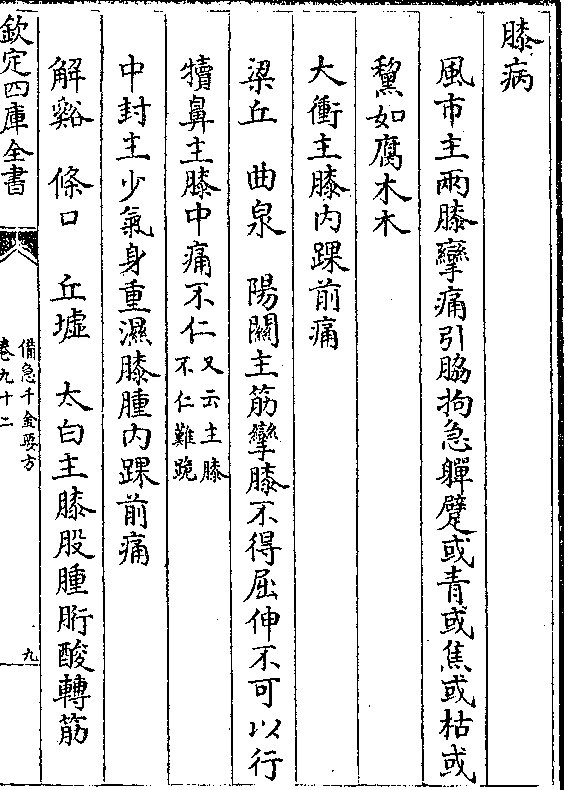 膝病
風市主兩膝攣痛引脇拘急嚲躄或青或焦或枯或
黧如腐木木
大衝主膝内踝前痛
梁丘　曲泉　陽關主筋攣膝不得屈伸不可以行
犢鼻主膝中痛不仁又云主膝不仁難跪
中封主少氣身重濕膝腫内踝前痛
解谿　條口　丘墟　太白主膝股腫胻酸轉筋
欽定四庫全書
備急千金要方
卷九十二
九